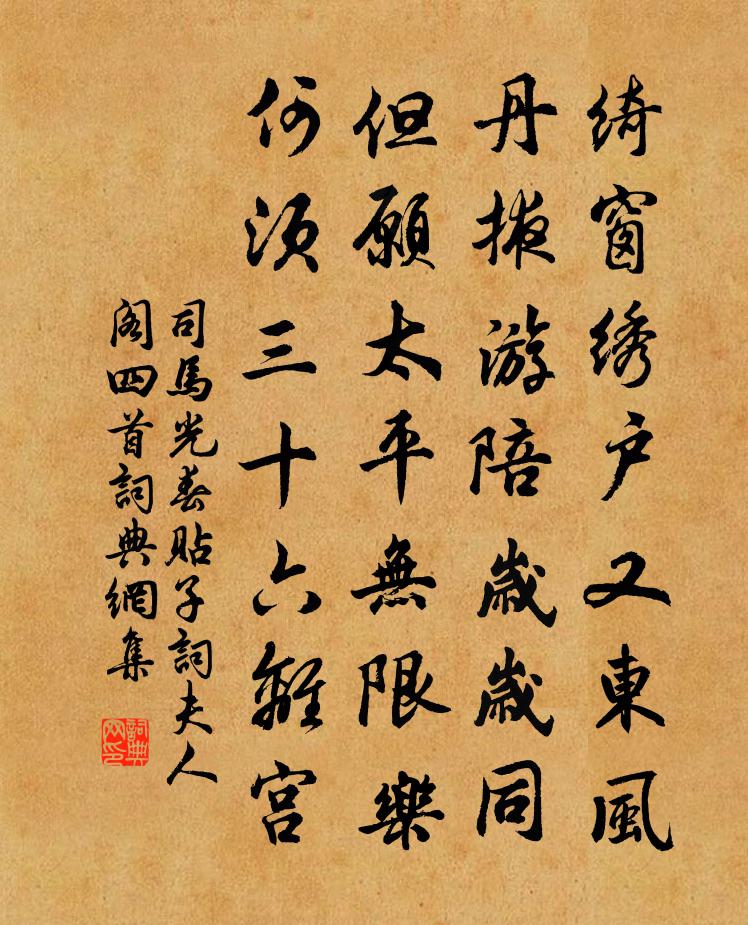 綺窗綉户又東風
丹掖游陪歲歲同
但願太平無限樂
何須三十六離宮
司馬光春貼子詞夫人
閣四首詞典網集
詞典
网印